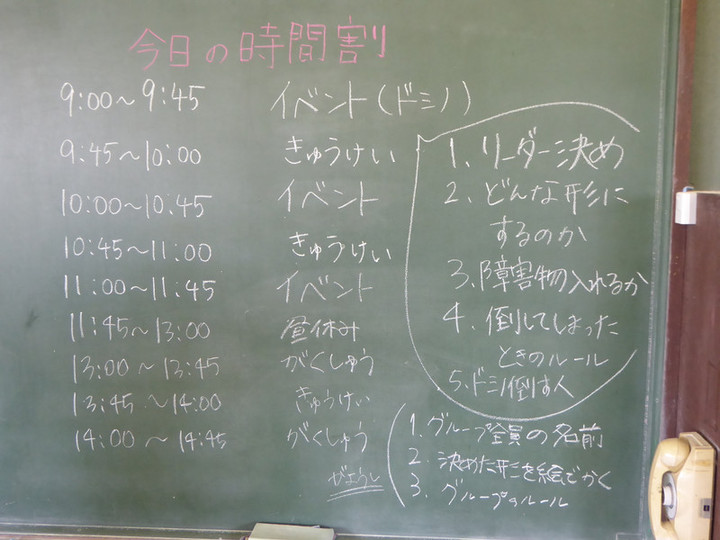 今日の時間割
9:00〜9:45 イベント(ドミノ)
9:45〜10:00 きゅうけい
10:00〜10:45 イベント
10:45〜11:00 きゅうけい
11:00〜11:45 イベント
11:45〜13:00 昼休み
13:00〜13:45 がくしゅう
13:45〜14:00 きゅうけい
14:00〜14:45 がくしゅう
1、リーダー決め
2、どんな形に
するのか
3、障害物入れるか
4、倒してしまった
ときのルール
5、ドミノ倒す人
1、グループ全員の名前
2、決めた形を絵でかく
3、グループのルール